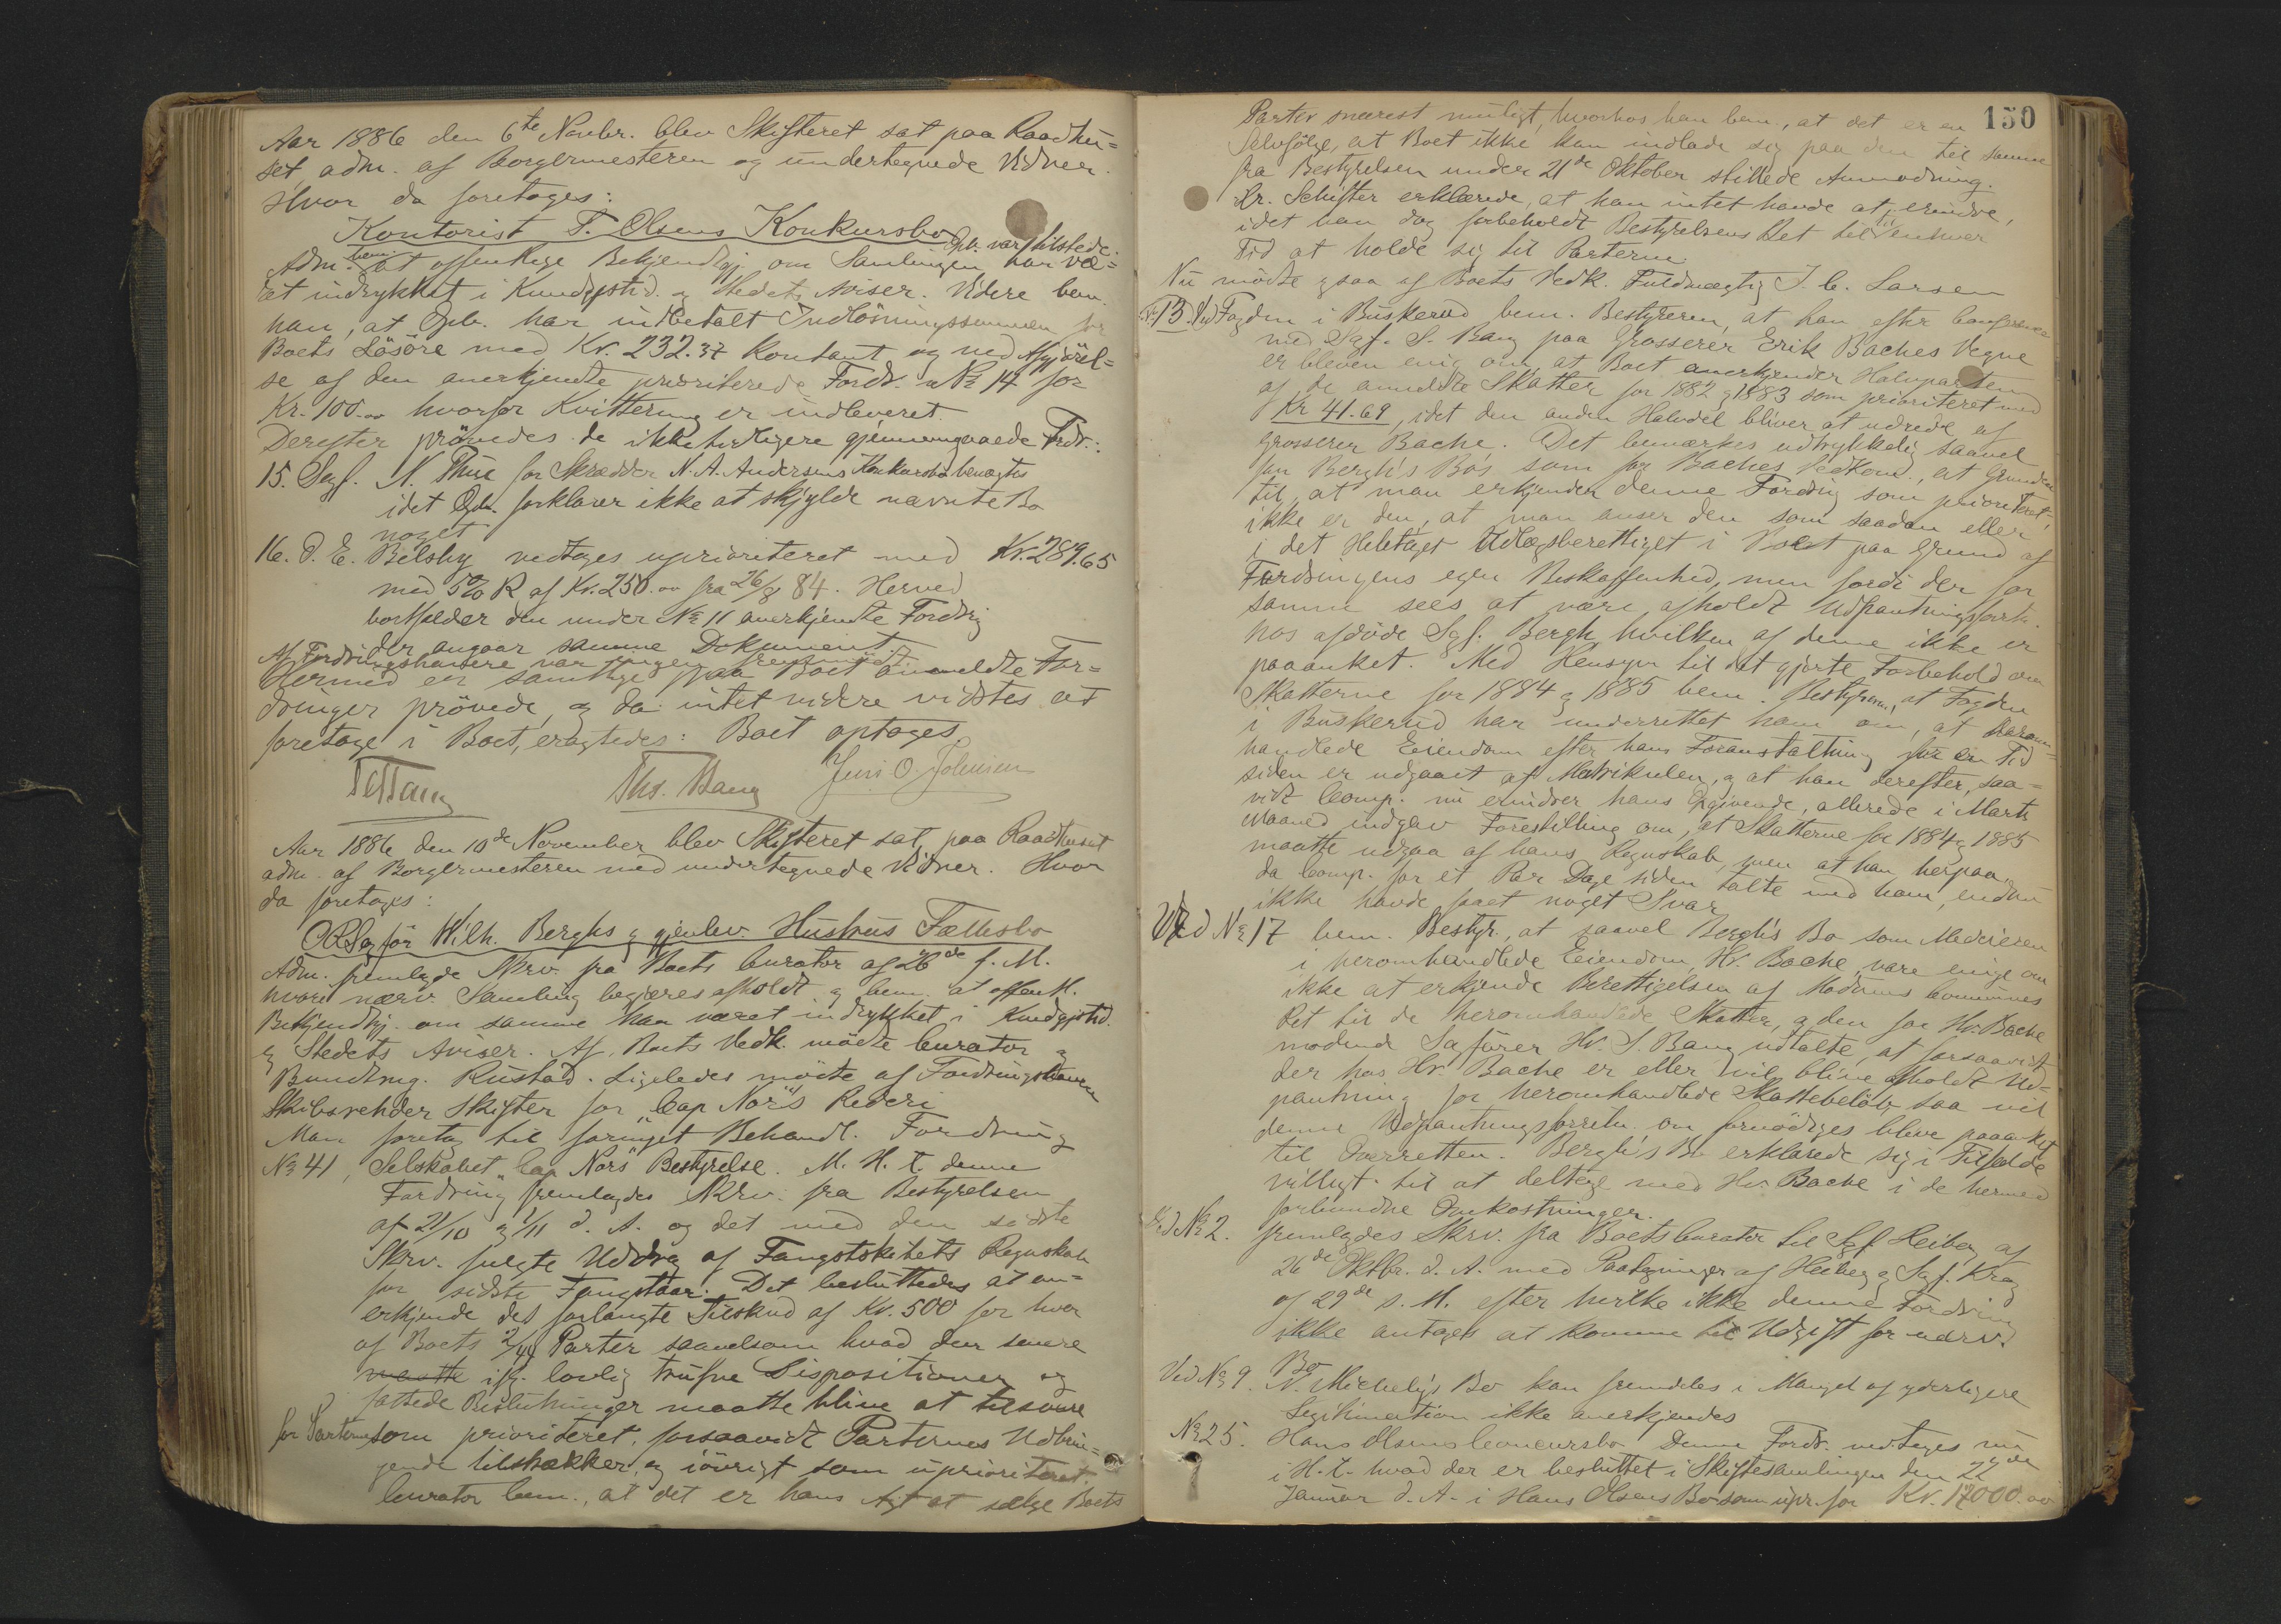 Aar 1886 den 6te Novbr. blev Skifteret sat paa Raadhu=
set, adm. af Borgermesteren og undertegnede Vidner.
Hvor da foretoges:
Kontorist T. Olsens Konkursbo. Opb. var tilstede.
Adm. bem. at offentlige Bekjendtgj. om Samlingen har væ=
ret indrykket i Kundgjstid. og Stedets Aviser. Videre bem.
han, at Opb. har indbetalt Indløsningssummen for
Boets Løsøre med Kr. 232.37 kontant og ved Afgjørel=
se af den anerkjendte prioriterede Fordr. No 14 for
Kr. 100.00 hvorfor Kvittering er indleveret.
Derefter prøvedes de ikke tidligere gjennemgaaede Fordr.:
15. Sagf. N. Thue for Skrædder N. A. Andersens Konkursbo benægtes
idet Opb. forklarer ikke at skylde nævnte Bo
noget
16. O. E. Bilsby vedtages uprioriteret med Kr. 289.65
med 5% R af Kr. 250.00 fra 26/8 84. Herved
bortfalder den under No 11 anerkjendte Fordrig
der angaar samme Dokument.
Af Fordringshavere var ingen fremmødt
Hermed er samtlige paa Boet anmeldte For=
dringer prøvede, og da intet videre vidstes at
foretage i Boet, eragtedes: Boet optages.
Ths. Bang Jens O. Johnsen
Aar 1886 den 10de November blev Skifteret sat paa Raadhuset
adm. af Borgermesteren med undertegnede Vidner. Hvor
da foretoges:
ORSagfør Wilh. Berghs og gjenlev. Hustrus Fællesbo
Adm. fremlagde Skrv. fra Boets Curator af 26de f. M.
hvori nærv. Samling begjæres afholdt og bem. at offentl.
Bekjendtgj. om samme har været indrykket i Kundgjstid.
og Stedets Aviser. Af Boets Vedk. mødte Curator og
Bundtmg. Rustad. Ligeledes mødte af Fordringshavere
Skibsrehder Skifter for "Cap Nors" Rederi
Man foretog til fornyet Behandl. Fordring
No 41, Selskabet "Cap Nors" Bestyrelse. M. H. t. denne
Fordring fremlagdes Skrv. fra Bestyrelsen
af 21/10 og 1/11 d. A. og det med den sidste
Skrv. fulgte Uddrag af Fangstskibets Regnskab
for sidste Fangstaar. Det besluttedes at an=
erkjende det forlangte Tilskud af Kr. 500 for hver
af Boets 2/44 Parter saavelsom hvad der senere
maatte ifg. lovlig trufne Dispositioner og
fattede Beslutninger maatte blive at tilsvare
for Parterne som prioriteret, forsaavidt Parternes Udbrin=
gende tilstrækker, og iøvrigt som uprioriteret.
Curator bem., at det er hans Agt at sælge Boets
150
Parter snarest muligt, hvorhos han bem., at det er en
Selvfølge, at Boet ikke kan indlade sig paa den til samme
fra Bestyrelsen under 21de Oktober stillede Anmodning.
Hr. Schifter erklærede, at han intet havde at erindre,
idet han dog forbeholdt Bestyrelsens Ret til til enhver
Tid at holde sig til Parterne
Nu mødte ogsaa af Boets Vedk. Fuldmægtig J. C. Larsen
No 13. Ved Fogden i Buskerud bem. Bestyreren, at han efter Conference
med Sagf. S. Bang paa Grosserer Erik Baches Vegne
er bleven enig om at Boet anerkjender Halvparten
af de anmeldte Skatter for 1882 og 1883 som prioriteret med
Kr 41.69, idet den anden Halvdel bliver at udrede af
Grosserer Bache. Det bemærkes udtrykkelig saavel
for Bergh's Bo's som for Baches Vedkom., at Grunden
til at man erkjender denne Fordrig som prioriteret,
ikke er den, at man anser den som saadan eller
i det Heletaget Udlægsberettiget i Boet paa Grund af
Fordringens egen Beskaffenhed, men fordi der for
samme sees at være afholdt Udpantningsforr.
hos afdøde Sagf. Bergh, hvilken af denne ikke er
paaanket. Med Hensyn til det gjorte Forbehold om
Skatterne for 1884 og 1885 bem. Bestyreren, at Fogden
i Buskerud har underrettet ham om, at herom=
handlede Eiendom efter hans Foranstaltning for en Tid
siden er udgaaet af Matrikulen, og at han derefter, saa=
vidt Comp. nu erindrer hans Opgivende, allerede i Marts
Maaned indgav Forestilling om, at Skatterne for 1884 og 1885
maatte udgaa af hans Regnskab, men at han herpaa,
da Comp. for et Par Dage siden talte med ham, endnu
ikke havde faaet noget Svar
Ved No 17 bem. Bestyr., at saavel Bergh's Bo som Medeieren
i heromhandlede Eiendom, Hr. Bache, vare enige om
ikke at erkjende Berettigelsen af Modums Communes
Ret til de heromhandlede Skatter, og den for Hr. Bache
mødende Sagfører Hr. S. Bang udtalte, at forsaavidt
der hos Hr. Bache er eller vil blive afholdt Ud=
pantning for heromhandlede Skattebeløb, saa vil
denne Udpantningsforretn. om fornødiges blive paaanket
til Overretten. Bergh's Bo erklærede sig i Tilfælde
villigt til at deltage med Hr. Bache i de hermed
forbundne Omkostninger.
Ved No 2. fremlagdes Skrv. fra Boets Curator til Sagf. Heiberg af
26de Oktbr. d. A. med Paategninger af Heiberg og Sagf. Krag
af 29de s. M. efter hvilke ikke denne Fordring
ikke antages at komme til Udgift for nærv.
Bo
Ved No 9. N. Michely's Bo kan fremdeles i Mangel af yderligere
Legitimation ikke anerkjendes
No 25. Hans Olsens Concursbo. Denne Fordr. vedtages nu
i H. t. hvad der er besluttet i Skiftesamlingen den 22de
Januar d. A. i Hans Olsens Bo som upr. for Kr. 17000.00